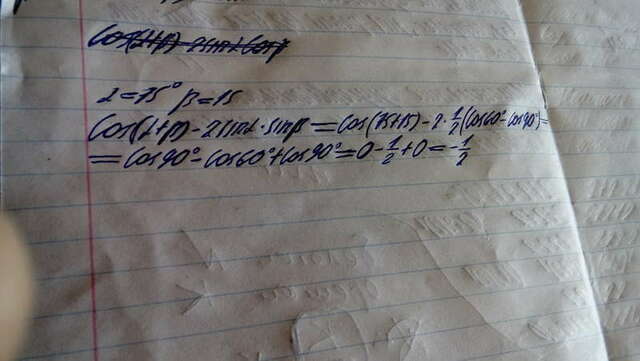 α = 75° β = 15
Cos(α+β) - 2 sinα · sinβ = Cos(75+15) - 2 · 1/2 (Cos60° - Cos90°) =
= Cos90° - Cos60° + Cos90° = 0 - 1/2 + 0 = -1/2